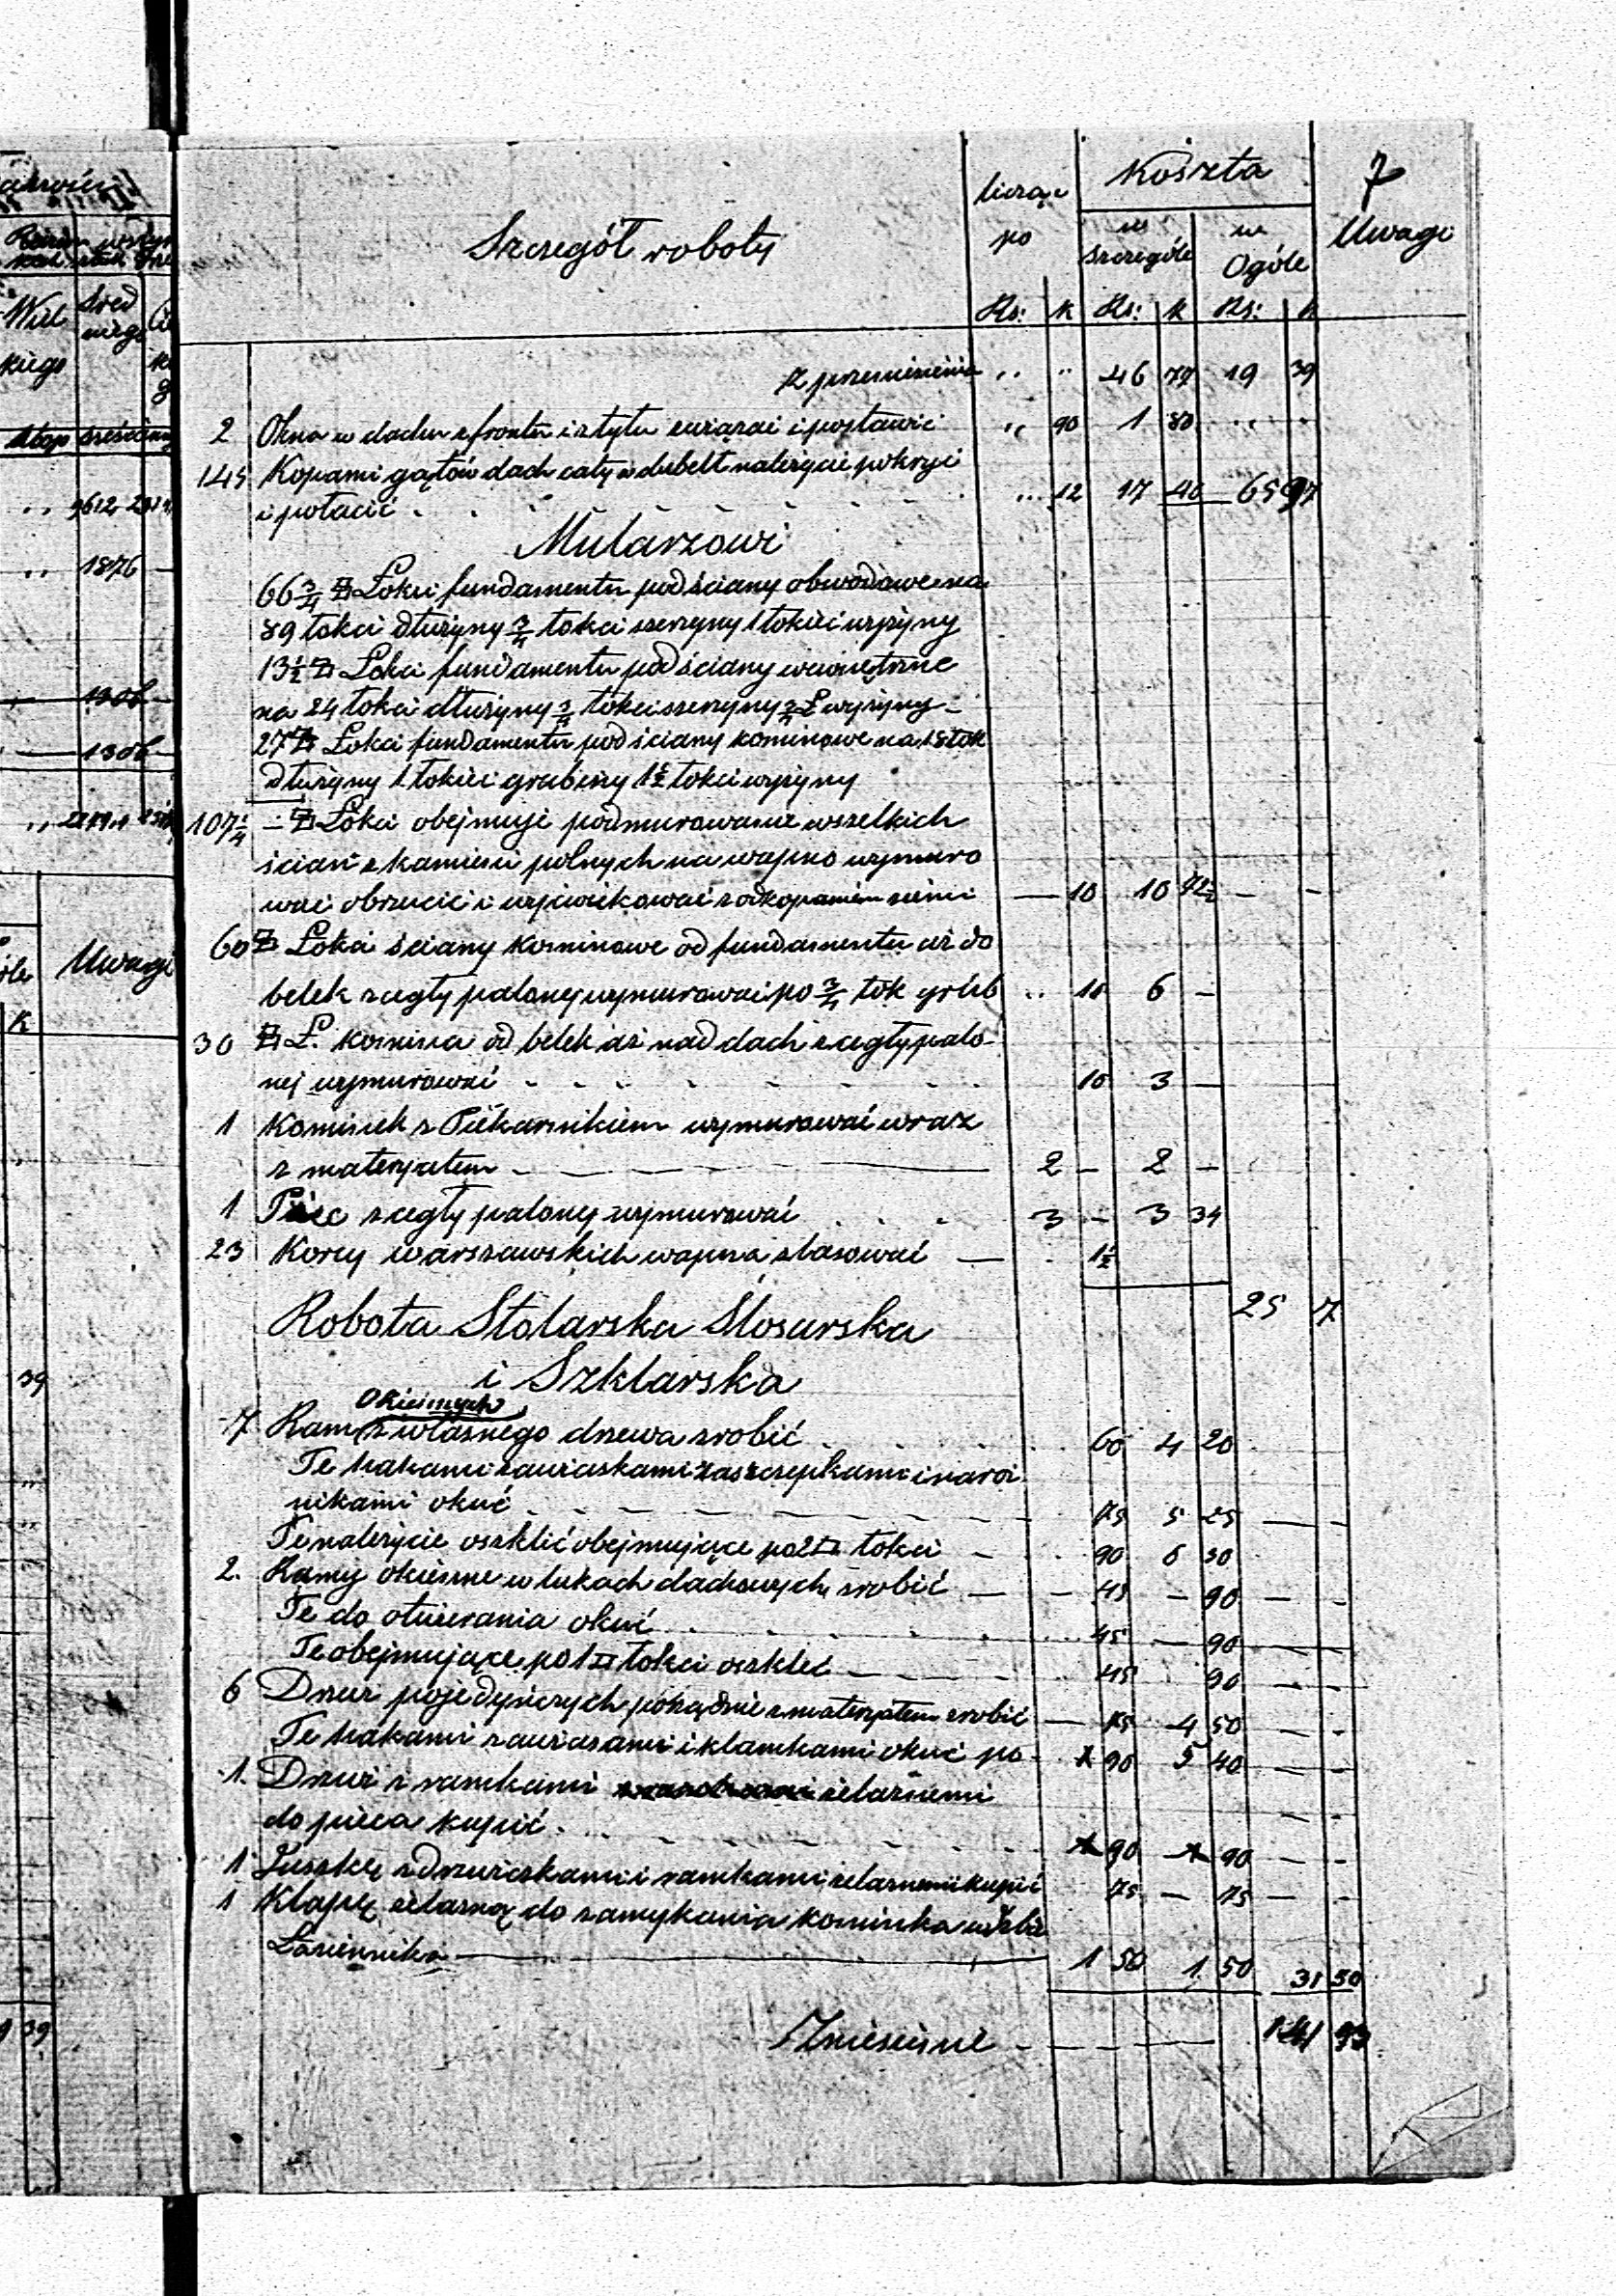 7
Szczegół roboty
licząc po
Koszta
w szczególe
w Ogóle
Uwagi
Rs: k Rs: k Rs: k
z przeniesienia „ „ 46 77 19 39
2 Okna w dachu z frontu i z tyłu związać i postawić „ 90 1 80 „ „
145 Kopami gątów dach cały w dubelt należycie pokryć
i połacić . . . . „ 12 17 40 65 97
Mularzowi
66 3/4 Łokci fundamentu pod ściany obwodowe na
89 łokci dłużyny 3/4 łokci szerzyny 1 łokieć wyżyny
13 1/2 Łokci fundamentu pod ściany wewnętrzne
na 24 łokci dłużyny 3/4 łokci szerzyny 3/4 Ł wyżyny -
27 Łokci fundamentu pod ściany kominowe na 18 łok
dłużyny 1 łokieć grubizny 1 1/2 łokci wyżyny
107 1/4 - Łokci obejmuje podmurowanie wszelkich
ścian z kamieni polnych na wapno wymuro
wać obrzucić i wyćwiekować z odkopaniem ziemi — 10 10 72 1/2 — -
60 Łokci ściany kominowe od fundamentu aż do
belek z cegły palonej wymurować po 3/4 łok grub „ 10 6 —
30 Ł. komina od belek aż nad dach z cegły palo-
nej wymurować - - - - 10 3 —
1 Kominek z Piekarnikiem wymurować wraz
z materyałem — 2 - 2 —
1 Piec z cegły palonej wymurować . . . 3 - 3 34
23 Korcy warszawskich wapna zlasować — . 1 1/2
25 7
Robota Stolarska Slosarska
i Szklarska
Okiennych
7 Ram z własnego drzewa zrobić . . . . 60 4 20
Te hakami zawiaskami zaszczepkami i naroż
nikami okuć - - - - 75 5 25 — -
Te należycie oszklić obejmujące po 2 łokci - . 90 6 30
2. Ramy okienne w lukach dachowych zrobić — - 45 - 90 — -
Te do otwierania okuć . . . . 45 — 90 — -
Te obejmujące po 1 łokci oszklić — 45 90 - -
6 Drzwi pojedynczych porządnie z materyałem zrobić — 75 4 50 — -
Te hakami zawiasami i klamkami okuć po - 90 5 40 — -
1. Drzwi z ramkami żelaznemi
do pieca kupić . - - - 90 - 90 - -
1 Luszkę z drzwiczkami i ramkami żelaznemi kupić 75 — 75 — -
1 Klapę żelazną do zamykania kominka w Izbie
Łaziennika — 1 50 1 50 31 50
Zniesienie - - - - 141 93
Uwagi
k
39
39
9612
1876
1306
1306